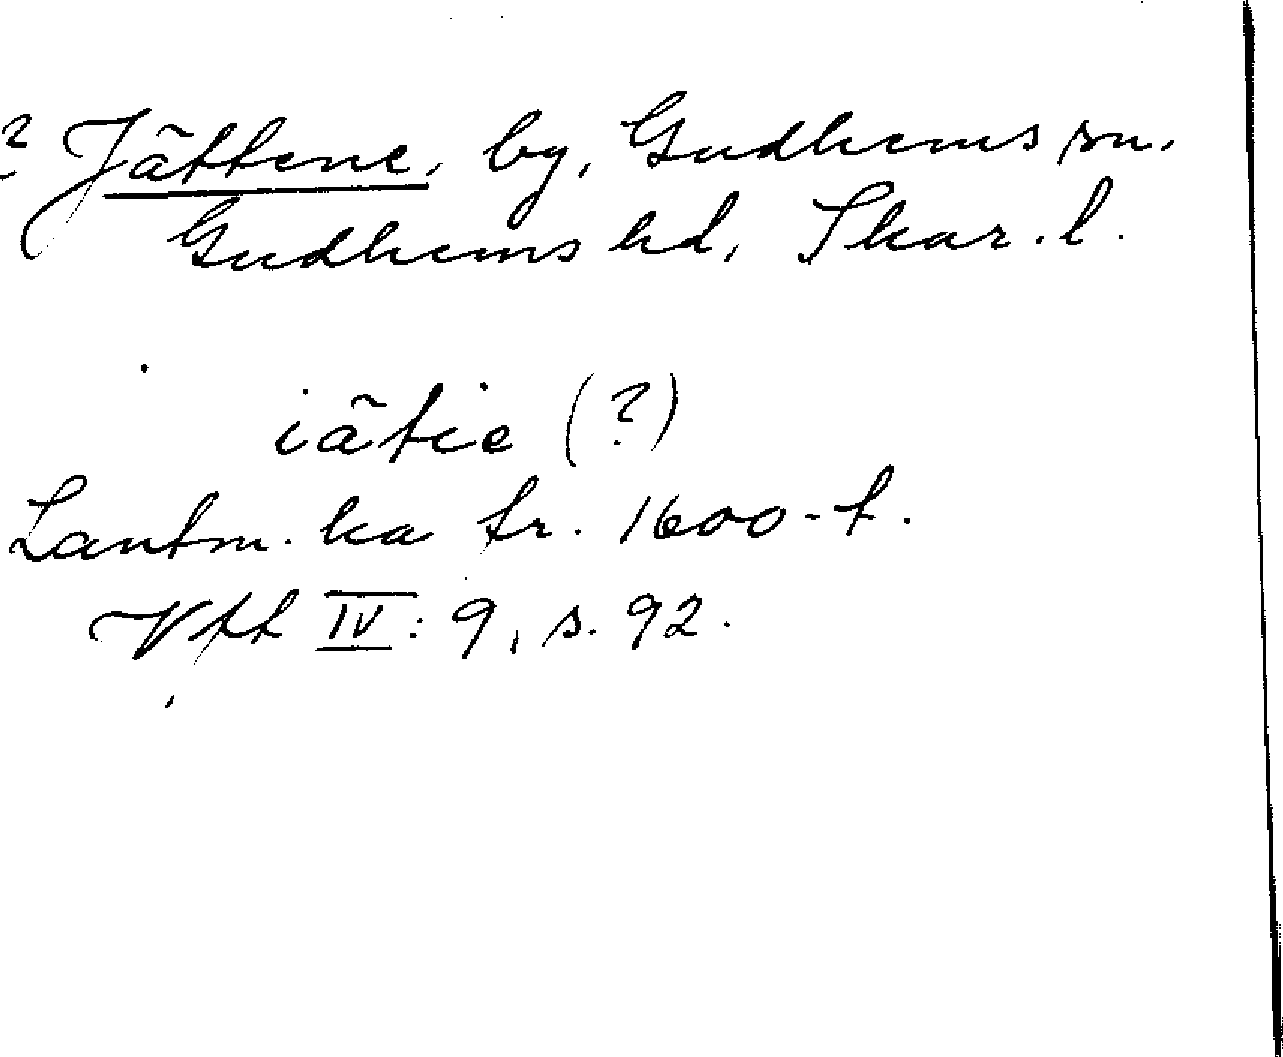 ? Jättene, by, Gudhems sn.
Gudhems hd, Skar. l.
iätie (?)
Lantm. ka fr. 1600-t.
Vft IV: 9, s. 92.